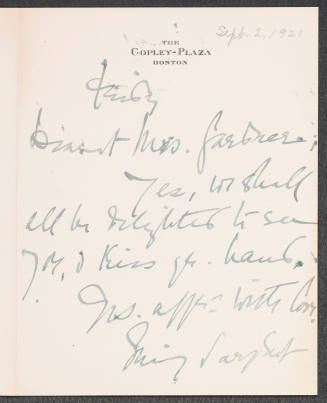 Sept. 2, 1921
THE
COPLEY-PLAZA
BOSTON
Friday
Dearest Mrs. Gardner,
Yes, we shall
all be delighted to see
you, & kiss yr. hand.
Yrs. affly. with love
Sargent